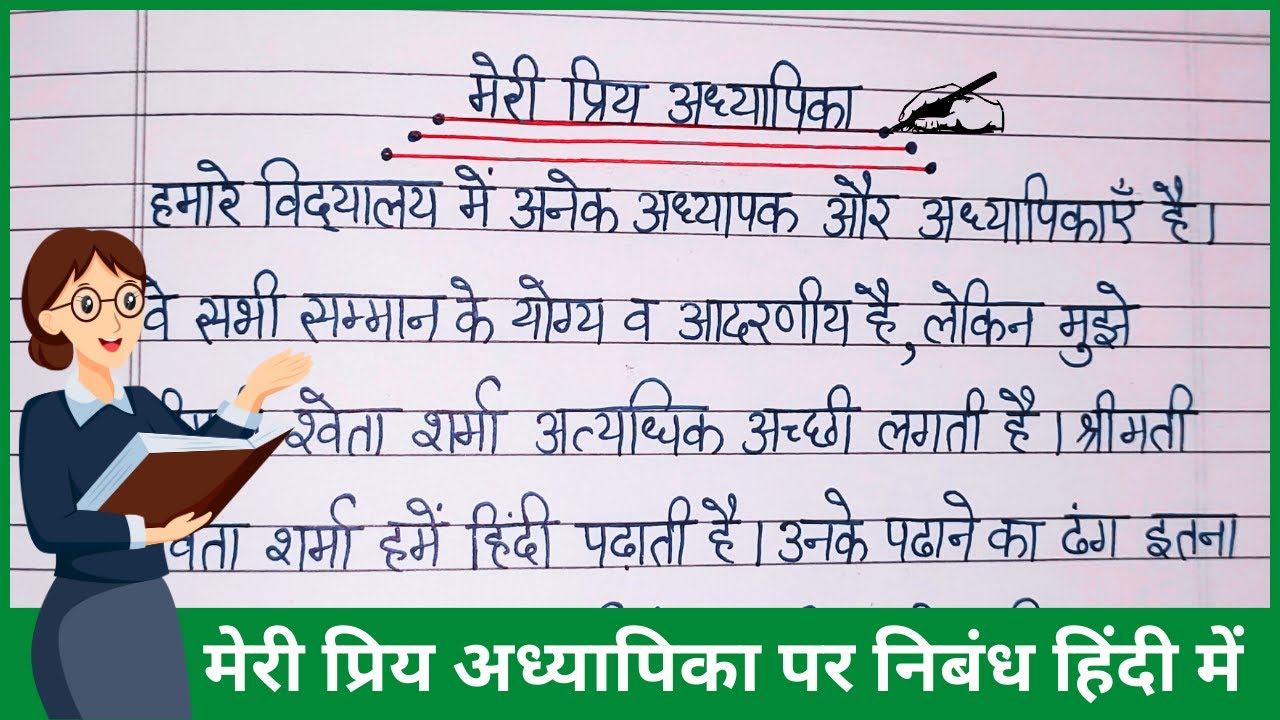 मेरी प्रिय अध्यापिका
हमारे विद्यालय में अनेक अध्यापक और अध्यापिकाएँ है।
वे सभी सम्मान के योग्य व आदरणीय है, लेकिन मुझे
श्वेता शर्मा अत्यधिक अच्छी लगती है। श्रीमती
शर्मा हमें हिंदी पढ़ाती है। उनके पढाने का ढंग इतना
मेरी प्रिय अध्यापिका पर निबंध हिंदी में